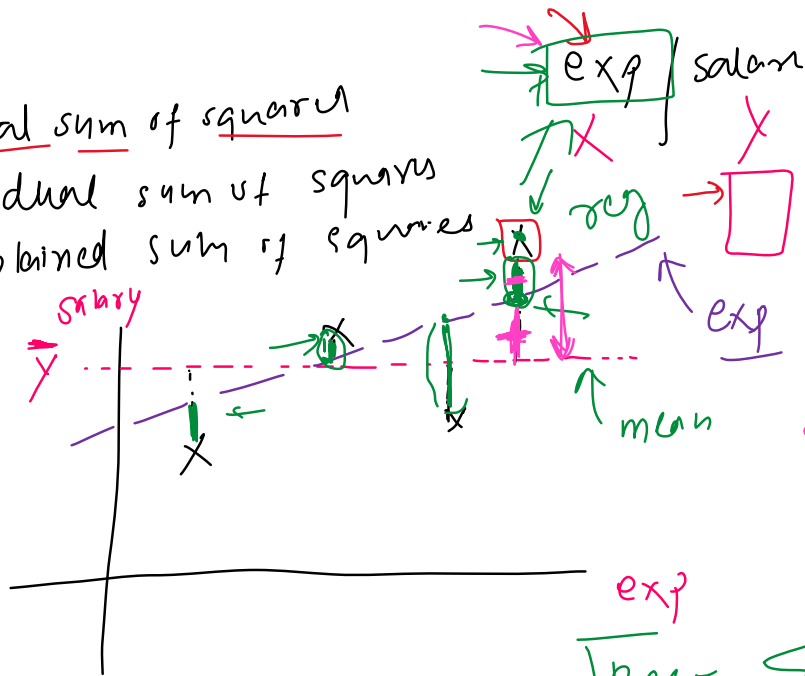 exp salary
al sum of squares
X Y
dual sum of squares
reg
plained sum of squares
salary
exp
Y
mean
X
X
X
X
exp